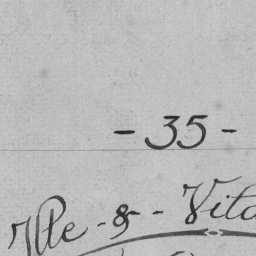 - 35 -
Ille - & - Vila